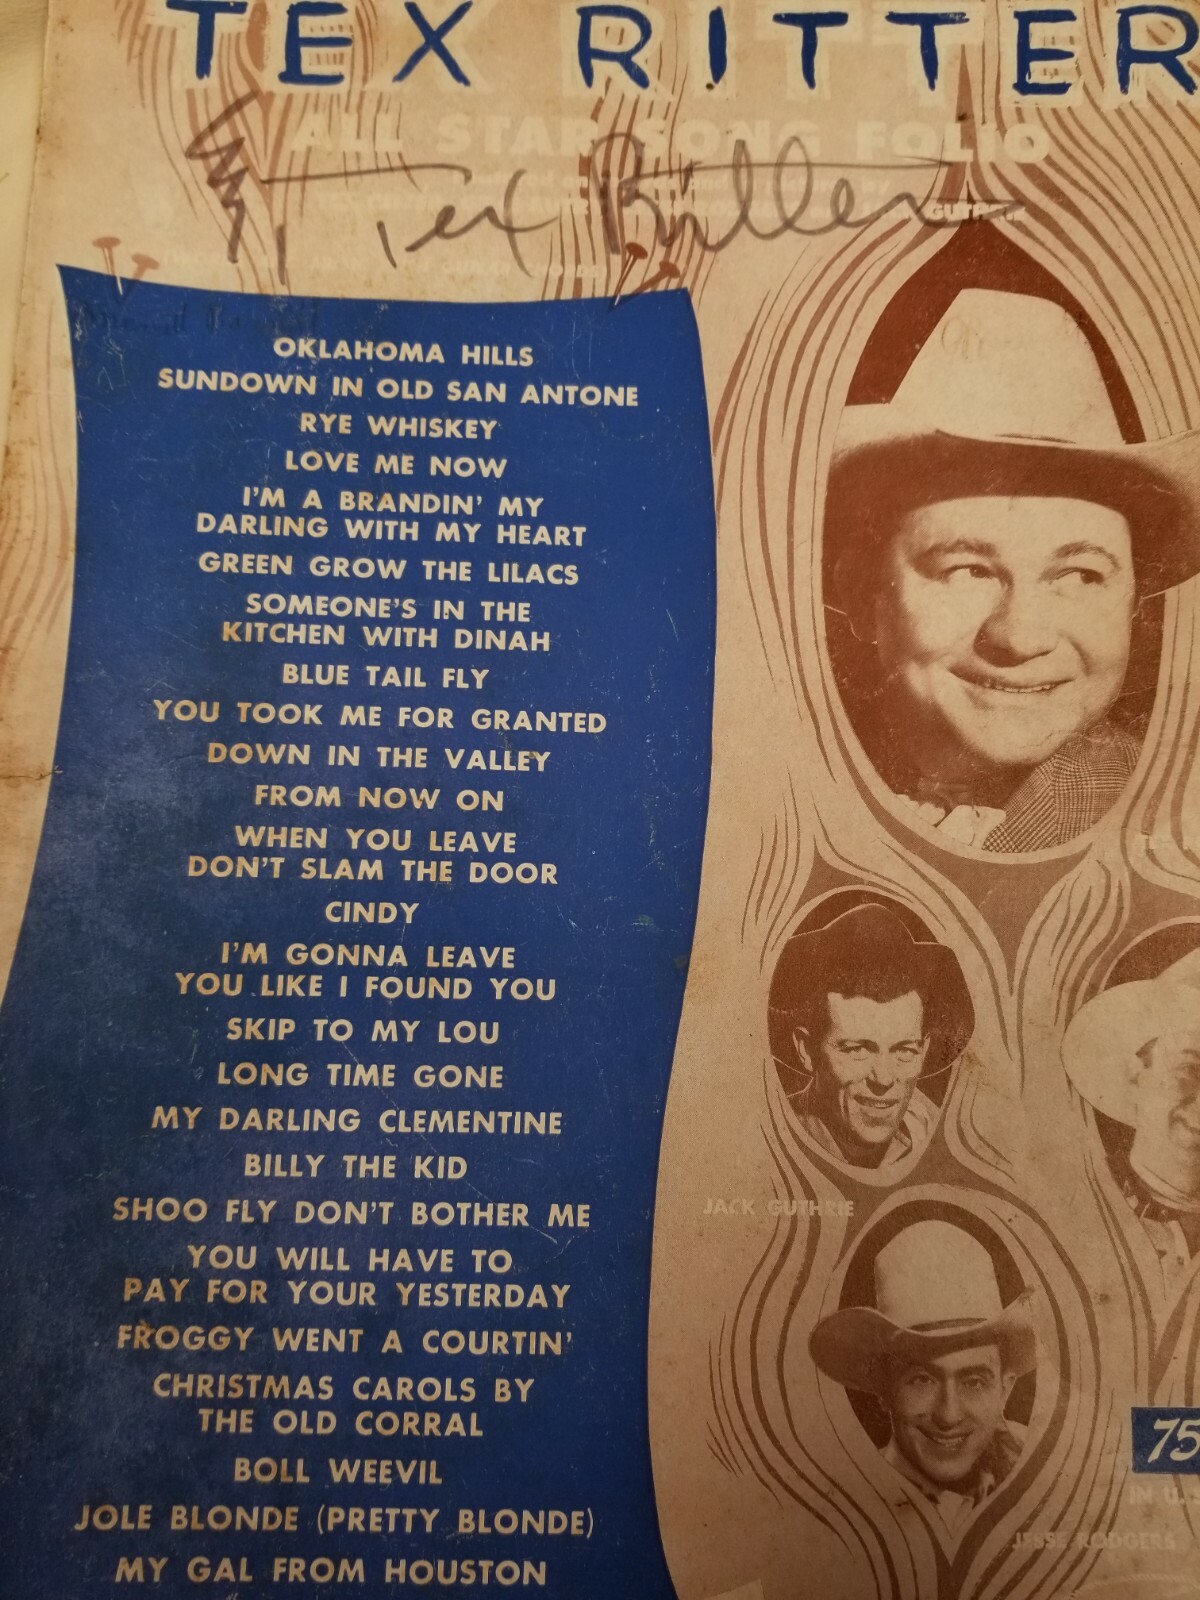 TEX RITTER
ALL STAR SONG FOLIO
Tex Ritter
GUTHRIE
OKLAHOMA HILLS
SUNDOWN IN OLD SAN ANTONE
RYE WHISKEY
LOVE ME NOW
I'M A BRANDIN' MY
DARLING WITH MY HEART
GREEN GROW THE LILACS
SOMEONE'S IN THE
KITCHEN WITH DINAH
BLUE TAIL FLY
YOU TOOK ME FOR GRANTED
DOWN IN THE VALLEY
FROM NOW ON
WHEN YOU LEAVE
DON'T SLAM THE DOOR
CINDY
I'M GONNA LEAVE
YOU LIKE I FOUND YOU
SKIP TO MY LOU
LONG TIME GONE
MY DARLING CLEMENTINE
BILLY THE KID
SHOO FLY DON'T BOTHER ME
YOU WILL HAVE TO
PAY FOR YOUR YESTERDAY
FROGGY WENT A COURTIN'
CHRISTMAS CAROLS BY
THE OLD CORRAL
BOLL WEEVIL
JOLE BLONDE (PRETTY BLONDE)
MY GAL FROM HOUSTON
JACK GUTHRIE
75
IN U.S
JESSE RODGERS